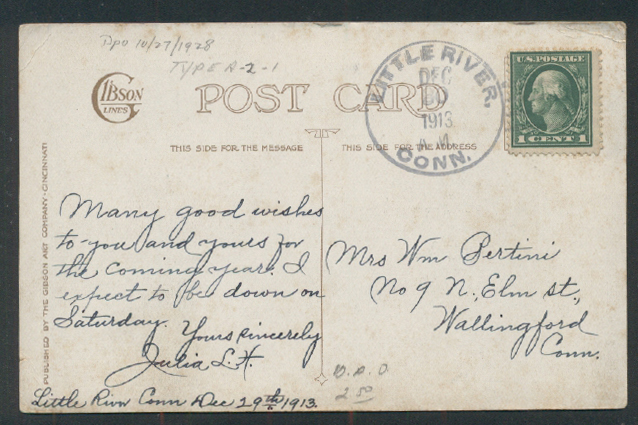 Dpo 10/27/1928
TYPE A-2-1
GIBSON
LINES
POST CARD
LITTLE RIVER,
DEC
30
1913
A.M.
CONN.
U.S. POSTAGE
1 CENT 1
THIS SIDE FOR THE MESSAGE
THIS SIDE FOR THE ADDRESS
PUBLISHED BY THE GIBSON ART COMPANY · CINCINNATI
Many good wishes
to you and yours for
the coming year. I
expect to be down on
Saturday. Yours sincerely
Julia L. H.
Little River Conn Dec 29th 1913.
Mrs Wm Pertini
No 9 N. Elm st.,
Wallingford
Conn.
2 50